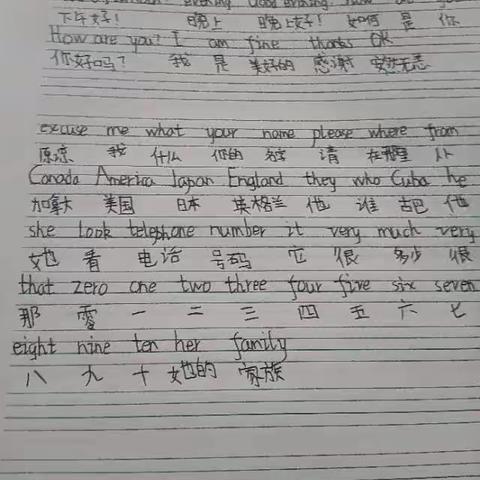 evening Good evening! how are you
下午好! 晚上 晚上好! 如何 是 你
How are you? I am fine thanks OK
你好吗? 我 是 美好的 感谢 安然无恙
excuse me what your name please where from
原凉 我 什么 你的 名字 请 在哪里 从
Canada America Japan England they who Cuba he
加拿大 美国 日本 英格兰 他 谁 古巴 他
she look telephone number it very much very
她 看 电话 号码 它 很 多少 很
that zero one two three four five six seven
那 零 一 二 三 四 五 六 七
eight nine ten her family
八 九 十 她的 家族